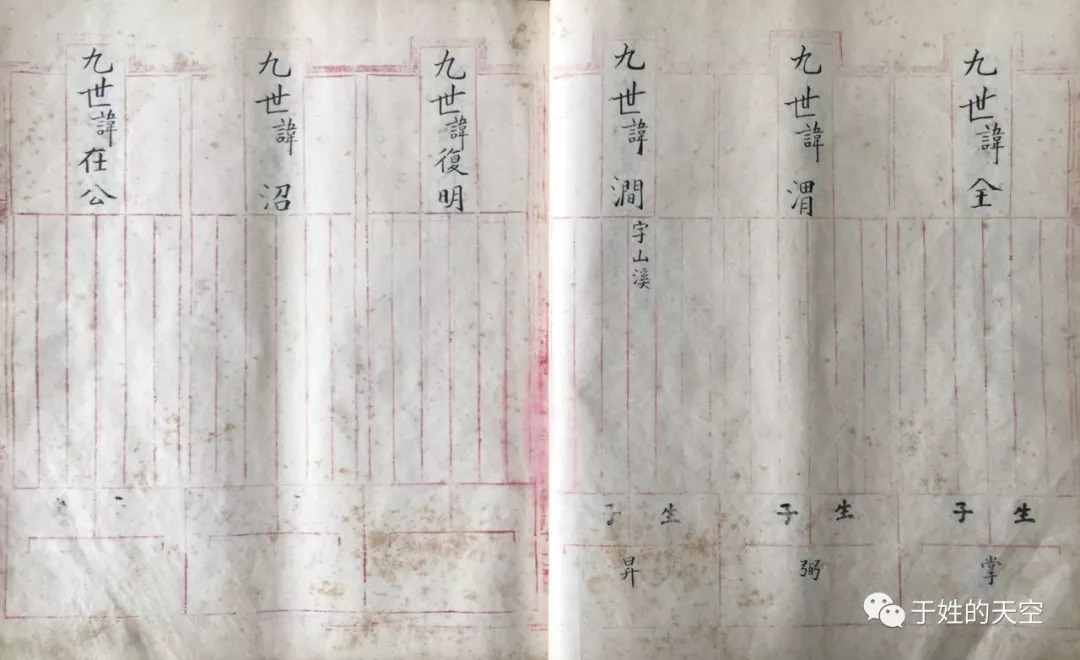 九世諱全
生子
掌
九世諱渭
生子
弼
九世諱澗
字山溪
生子
昇
九世諱復明
九世諱沼
九世諱在公
于姓的天空